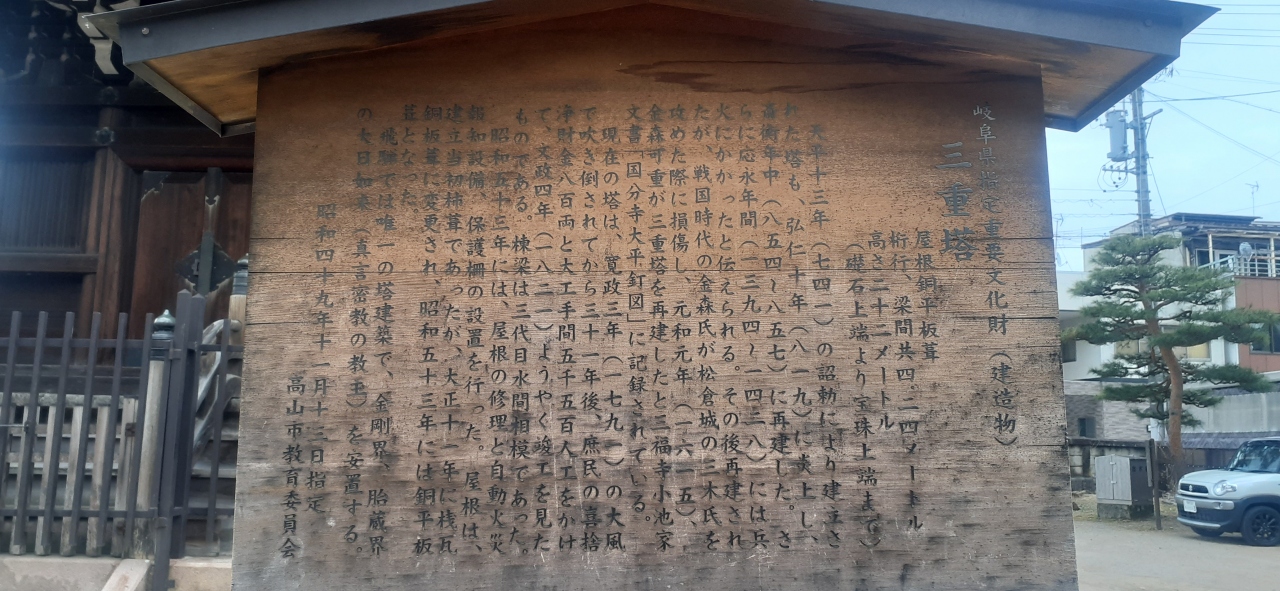 岐阜県指定重要文化財（建造物）
三重塔
屋根銅平板葺
桁行、梁間共四．二四メートル
高さ二十二メートル
（礎石上端より宝珠上端まで）
天平十三年（七四一）の詔勅により建立さ
れた塔も、弘仁十年（八一九）に炎上し、
斉衡年中（八五四～八五七）に再建した。さ
らに応永年間（一三九四～一四三八）には兵
火にかかったと伝えられる。その後再建され
たが、戦国時代の金森氏が松倉城の三木氏を
攻めた際に損傷し、元和元年（一六一五）、
金森可重が三重塔を再建したと三福寺小池家
文書「国分寺大平釘図」に記録されている。
現在の塔は、寛政三年（一七九一）の大風
で吹き倒されてから三十一年後、庶民の喜捨
浄財金八百両と大工手間五千五百人工をかけ
て、文政四年（一八二一）ようやく竣工を見た
ものである。棟梁は三代目水間相模であった。
昭和五十三年には、屋根の修理と自動火災
報知設備、保護柵の設置を行った。屋根は、
建立当初柿葺であったが、大正十一年に桟瓦
銅板葺に変更され、昭和五十三年には銅平板
葺となった。
飛騨では唯一の塔建築で、金剛界、胎蔵界
の大日如来（真言密教の教王）を安置する。
昭和四十九年十一月十三日指定
高山市教育委員会